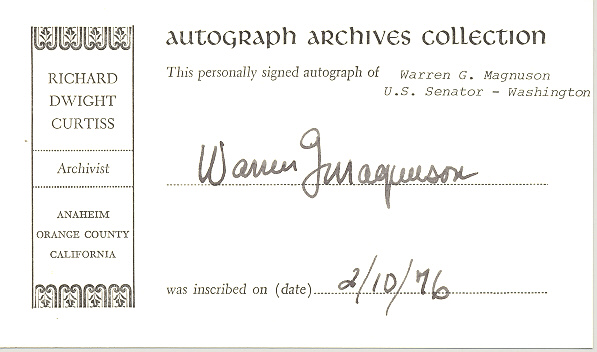 AUTOGRAPH ARCHIVES COLLECTION
RICHARD
DWIGHT
CURTISS
Archivist
ANAHEIM
ORANGE COUNTY
CALIFORNIA
This personally signed autograph of Warren G. Magnuson
U.S. Senator - Washington
Warren G Magnuson
was inscribed on (date) 2/10/76